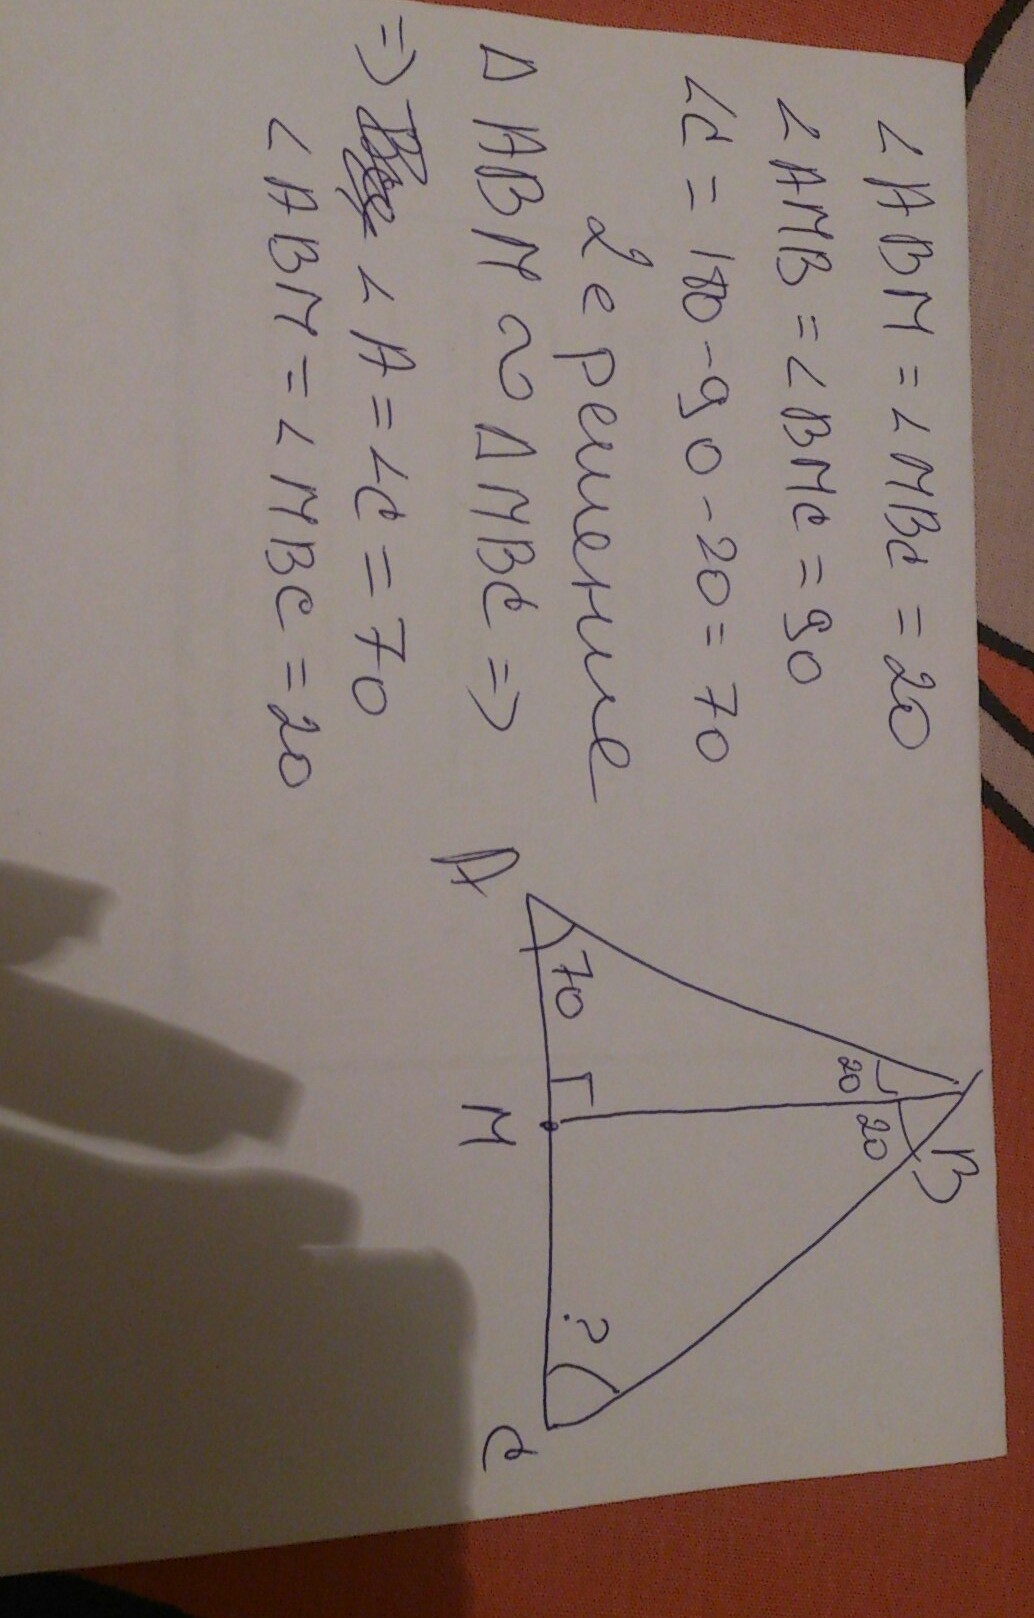 ∠ABM = ∠MBC = 20
∠AMB = ∠BMC = 90
∠C = 180-90-20 = 70
2е решение
Δ ABM ∾ Δ MBC =>
=> ∠A = ∠C = 70
∠ABM = ∠MBC = 20
B
20
20
70
?
A
M
C